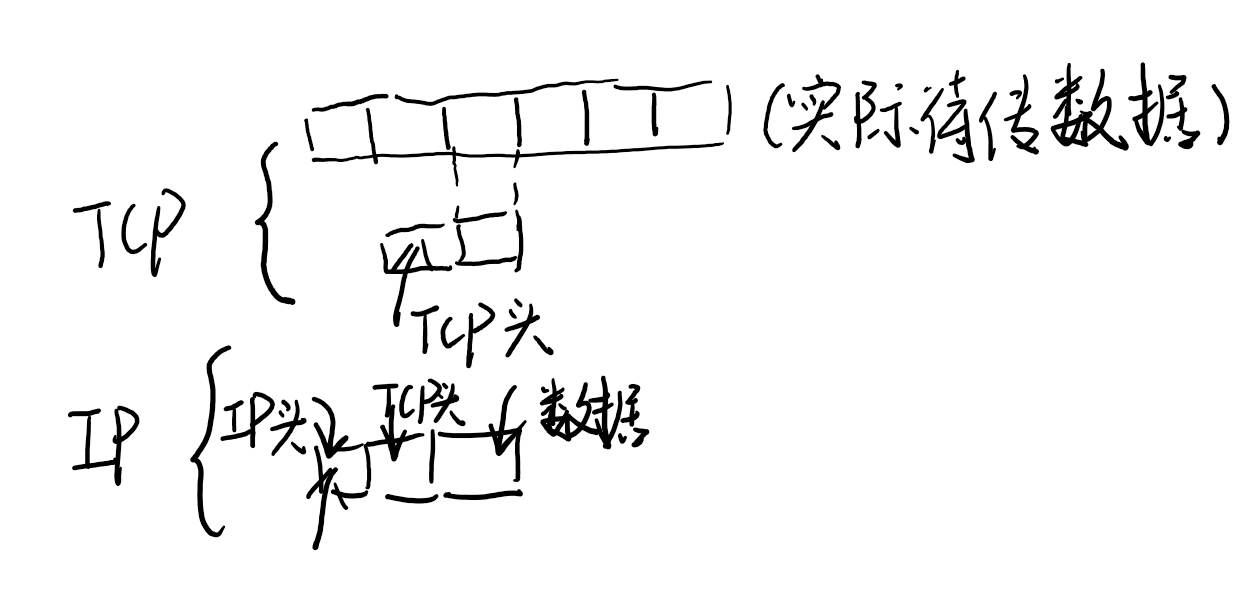 (实际待传数据)
TCP
TCP头
IP
IP头
TCP头
数据